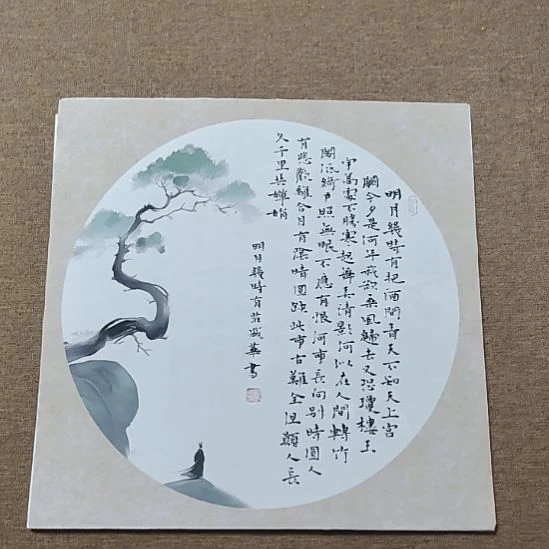 明月幾時有把酒問青天不知天上宮
闕今夕是何年我欲乘風歸去又恐瓊樓玉
宇高處不勝寒起舞弄清影何似在人間轉竹
閣低綺戶照無眠不應有恨何事長向別時圓人
有悲歡離合月有陰晴圓缺此事古難全但願人長
久千里共嬋娟
明月幾時有 華書